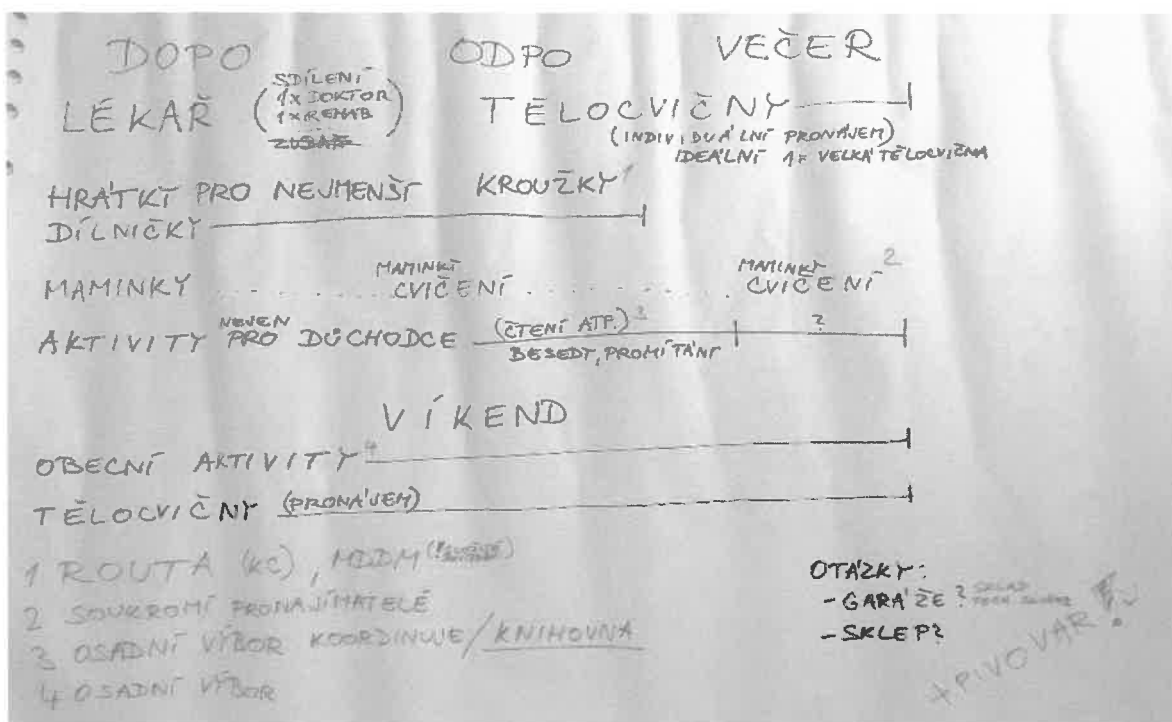 DOPO ODPO VEČER
LÉKAŘ (SDÍLENÍ 1x DOKTOR 1x REHAB ZUBAŘ) TĚLOCVIČNY
(INDIVIDUÁLNÍ PRONÁJEM)
IDEÁLNÍ 1x VELKÁ TĚLOCVIČNA
HRÁTKY PRO NEJMENŠÍ KROUŽKY 1
DÍLNIČKY
MAMINKY MAMINKY CVIČENÍ MAMINKY CVIČENÍ 2
AKTIVITY NEJEN PRO DŮCHODCE (ČTENÍ ATP.) 3 ?
BESEDY, PROMÍTÁNÍ
VÍKEND
OBECNÍ AKTIVITY 4
TĚLOCVIČNY (PRONÁJEM)
1 ROUTA (KC), MDDM
2 SOUKROMÍ PRONAJÍMATELÉ
3 OSADNÍ VÝBOR KOORDINUJE/KNIHOVNA
4 OSADNÍ VÝBOR
OTÁZKY:
- GARÁŽE? SKLAD
- SKLEP?
+ PIVOVAR!